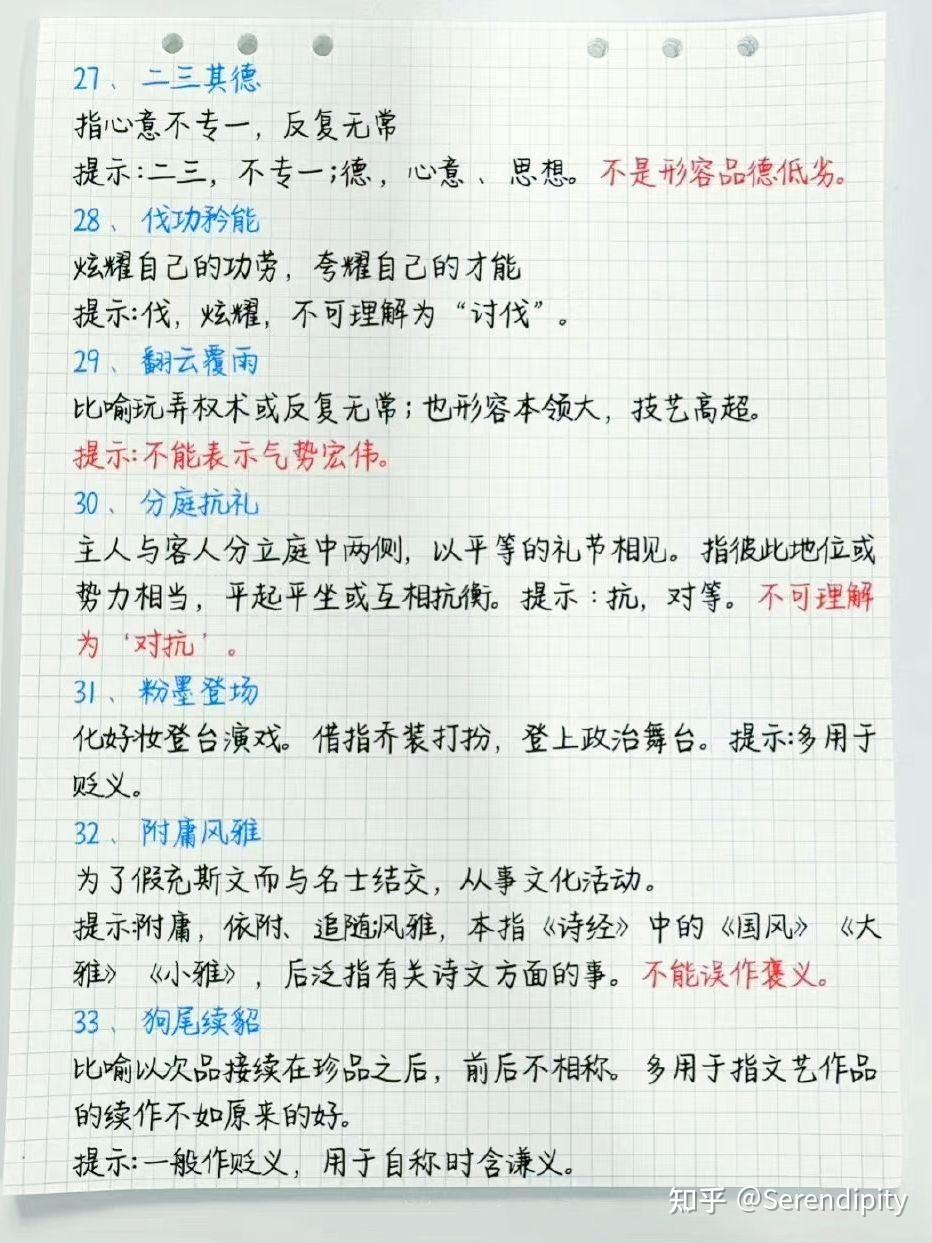 27、二三其德
指心意不专一，反复无常
提示:二三，不专一;德，心意、思想。不是形容品德低劣。
28、伐功矜能
炫耀自己的功劳，夸耀自己的才能
提示:伐，炫耀，不可理解为“讨伐”。
29、翻云覆雨
比喻玩弄权术或反复无常；也形容本领大，技艺高超。
提示:不能表示气势宏伟。
30、分庭抗礼
主人与客人分立庭中两侧，以平等的礼节相见。指彼此地位或
势力相当，平起平坐或互相抗衡。提示：抗，对等。不可理解
为‘对抗’。
31、粉墨登场
化好妆登台演戏。借指乔装打扮，登上政治舞台。提示:多用于
贬义。
32、附庸风雅
为了假充斯文而与名士结交，从事文化活动。
提示:附庸，依附、追随;风雅，本指《诗经》中的《国风》《大
雅》《小雅》，后泛指有关诗文方面的事。不能误作褒义。
33、狗尾续貂
比喻以次品接续在珍品之后，前后不相称。多用于指文艺作品
的续作不如原来的好。
提示:一般作贬义，用于自称时含谦义。
知乎 @Serendipity